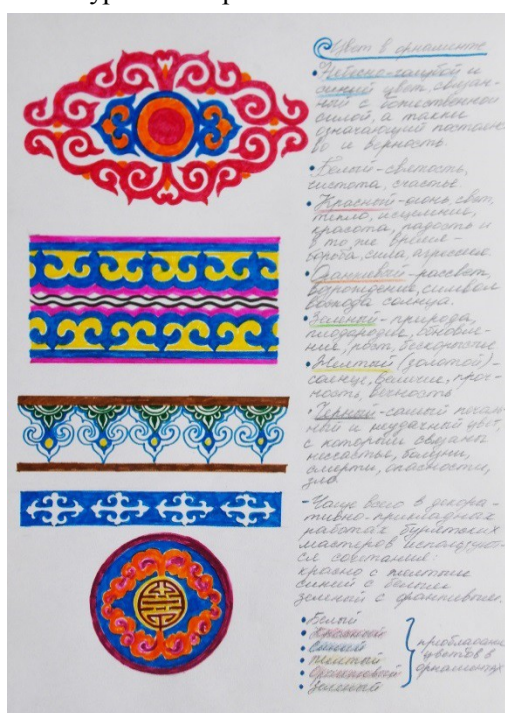 Цвет в орнаменте
• Небесно-голубой и
синий цвет, связан-
ный с божественной
силой, а также
означающий постоянст-
во и верность.
• Белый - святость,
чистота, счастье.
• Красный - огонь, свет,
тепло, исцеление,
красота, радость и
в то же время -
борьба, сила, агрессия.
• Оранжевый - рассвет,
возрождение, символ
восхода солнца.
• Зеленый - природа,
плодородие, обновле-
ние, рост, бесконечность
• Желтый (золотой) -
солнце, величие, проч-
ность, вечность
• Черный - самый печаль-
ный и неудачный цвет,
с которым связаны
несчастье, болезни,
смерть, опасности,
зло.
- Чаще всего в декора-
тивно-прикладных
работах бурятских
мастеров используют-
ся сочетания:
красно с желтым
синий с белым
зеленый с оранжевым.
• Белый
• Красный
• Синий
• Желтый
• Оранжевый
• Зеленый
преобладание
цветов в
орнаментах